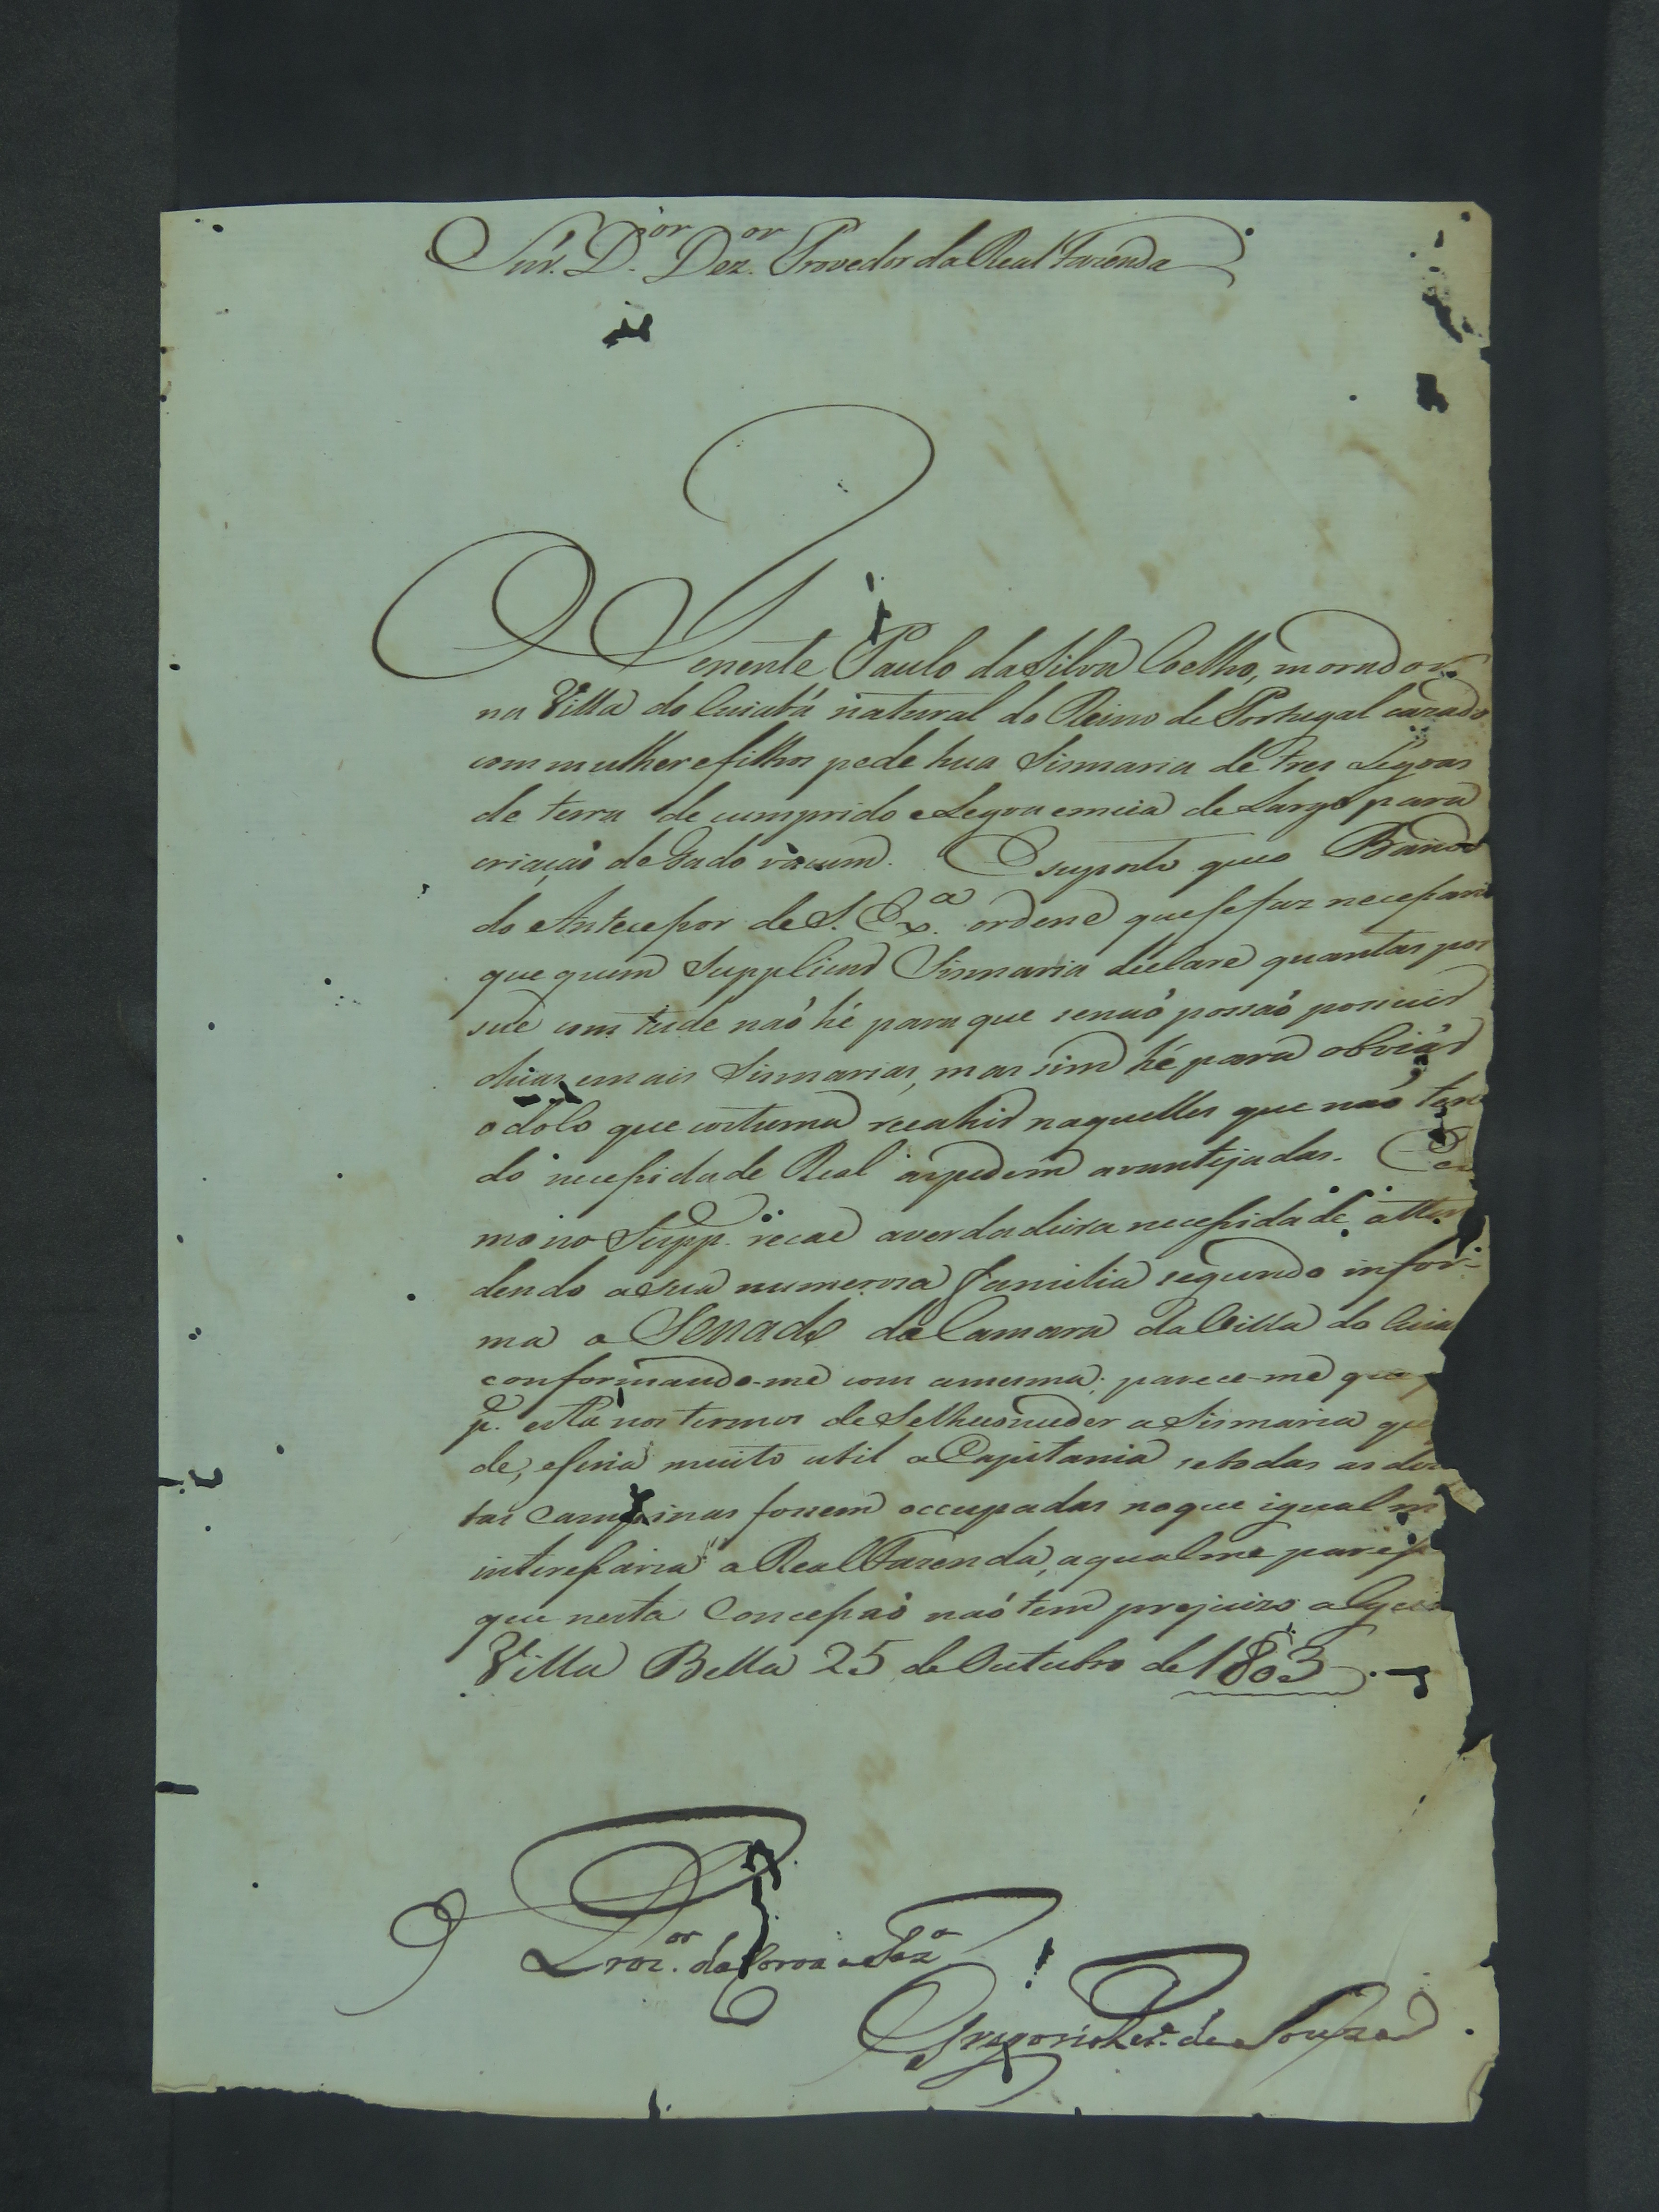 Snr. D.or Dez.or Provedor da Real Fazenda
O Tenente Paulo da Silva Coelho, morador
na Villa do Cuiabá natural do Reino de Portugal cazado
com mulher e filhos pede hua Sismaria de tres Legoas
de terra de cumprido e Legoa emeia de Largo para
criaçaõ de Gado vacum. E suposto que o Bando
do Antecessor de S. Ex.a ordene que se faz necessario
que quem Supplicar Sismaria declare quantas pos
sue com tudo naõ hé para que senaõ possaõ possuir
duas emais Sismarias, mas sim hé para obviar
o dolo que costuma recahir naquelles que naõ ten
do necessidade Real as pedem avantejadas. Co
mo no Supp.e recae averdadeira necessidade atten
dendo a sua numerosa familia segundo infor-
ma o Senado da Camara da Villa do Cuia
conformando-me com amesma; parece-me que
p.e está nos termos de selheconceder a Sismaria que
de, eseria muito util a Capitania setodas as dezer
tas Campinas fossem occupadas no que igualm
interessaria a Real Fazenda, aqual me parece
que nesta Concessaõ naõ tem prejuizo algum
Villa Bella 25 de Outubro de 1803
O Proc.or da Coroa e Faz.a
Gregorio Per.a de Souza